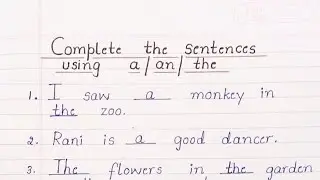 Complete the sentences
using a/an/the
1. I saw a monkey in
the zoo.
2. Rani is a good dancer.
3. The flowers in the garden